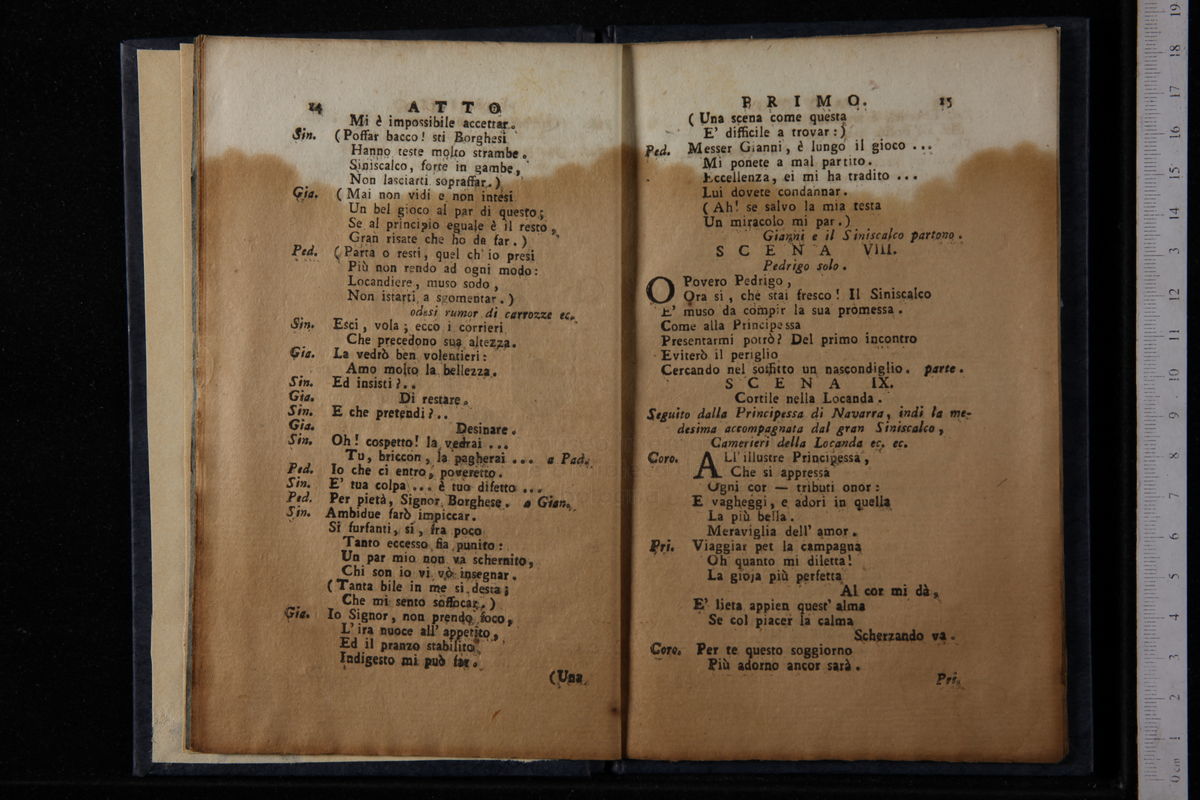 14 ATTO
Mi è impossibile accettar.
Sin. (Poffar bacco! sti Borghesi
Hanno teste molto strambe.
Siniscalco, forte in gambe,
Non lasciarti sopraffar.)
Gia. (Mai non vidi e non intesi
Un bel gioco al par di questo;
Se al principio eguale è il resto,
Gran risate che ho da far.)
Ped. (Parta o resti, quel ch'io presi
Più non rendo ad ogni modo:
Locandiere, muso sodo,
Non istarti a sgomentar.)
odesi rumor di carrozze ec.
Sin. Esci, vola; ecco i corrieri
Che precedono sua altezza.
Gia. La vedrò ben volentieri:
Amo molto la bellezza.
Sin. Ed insisti?..
Gia. Di restare.
Sin. E che pretendi?..
Gia. Desinare.
Sin. Oh! cospetto! la vedrai ...
Tu, briccon, la pagherai ... a Pad.
Ped. Io che ci entro, poveretto.
Sin. E' tua colpa ... è tuo difetto ...
Ped. Per pietà, Signor Borghese. a Gian.
Sin. Ambidue farò impiccar.
Sì furfanti, sì, fra poco
Tanto eccesso fia punito:
Un par mio non va schernito,
Chi son io vi vò insegnar.
(Tanta bile in me si desta;
Che mi sento soffocar.)
Gia. Io Signor, non prendo foco,
L'ira nuoce all' appetito,
Ed il pranzo stabilito
Indigesto mi può far.
(Una
PRIMO. 15
(Una scena come questa
E' difficile a trovar:)
Ped. Messer Gianni, è lungo il gioco ...
Mi ponete a mal partito.
Eccellenza, ei mi ha tradito ...
Lui dovete condannar.
(Ah! se salvo la mia testa
Un miracolo mi par.)
Gianni e il Siniscalco partono.
SCENA VIII.
Pedrigo solo.
O Povero Pedrigo,
Ora sì, che stai fresco! Il Siniscalco
E' muso da compir la sua promessa.
Come alla Principessa
Presentarmi potrò? Del primo incontro
Eviterò il periglio
Cercando nel soffitto un nascondiglio. parte.
SCENA IX.
Cortile nella Locanda.
Seguito dalla Principessa di Navarra, indi la me-
desima accompagnata dal gran Siniscalco,
Camerieri della Locanda ec. ec.
Coro. ALl'illustre Principessa,
Che si appressa
Ogni cor — tributi onor:
E vagheggi, e adori in quella
La più bella.
Meraviglia dell' amor.
Pri. Viaggiar pet la campagna
Oh quanto mi diletta!
La gioja più perfetta
Al cor mi dà,
E' lieta appien quest' alma
Se col piacer la calma
Scherzando va.
Coro. Per te questo soggiorno
Più adorno ancor sarà.
Pri.
0 cm 1 2 3 4 5 6 7 8 9 10 11 12 13 14 15 16 17 18 19